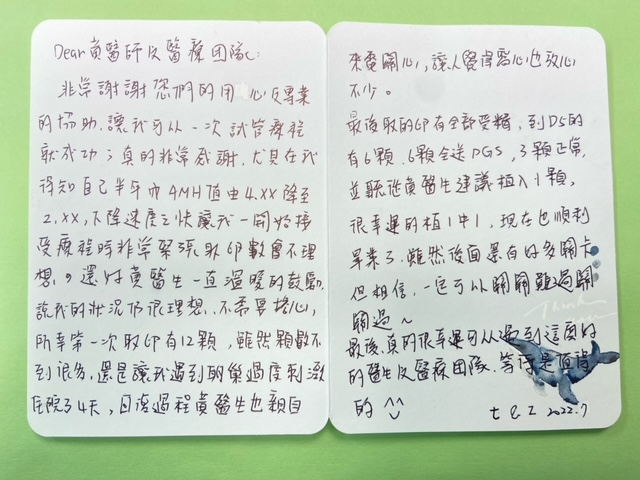 Dear 黃醫師及醫療團隊:
非常謝謝您們的用心及專業
的協助,讓我可以一次試管療程
就成功;真的非常感謝,尤其在我
得知自己半年內AMH值由4.XX降至
2.XX,下降速度之快讓我一開始接
受療程時非常緊張取卵數會不理
想。還好黃醫生一直溫暖的鼓勵,
說我的狀況仍很理想,不需要擔心,
所幸第一次取卵有12顆,雖然顆數不
到很多,還是讓我遇到卵巢過度刺激
住院了4天,回復過程黃醫生也親自
來電關心,讓人覺得窩心也放心
不少。
最後取的卵有全部受精,到D5的
有6顆,6顆全送PGS,3顆正常,
並聽從黃醫生建議植入1顆,
很幸運的植1中1,現在也順利
畢業了,雖然後面還有好多關卡
但相信,一定可以關關難過關
關過~
最後,真的很幸運可以遇到這麼好
的醫生及醫療團隊,等待是值得
的 ^^
t & I 2022.7
Thank